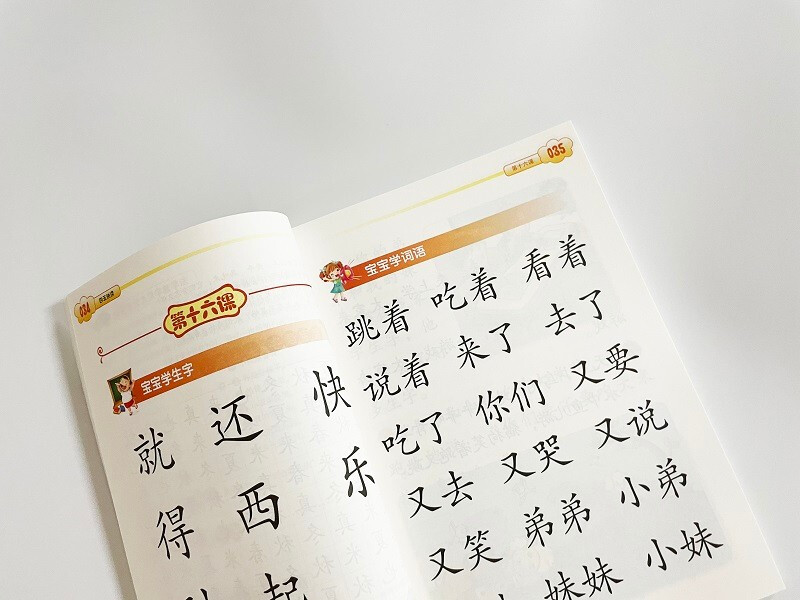 034
第十六课
宝宝学生字
就 还 快
得 西 乐
起
第十六课 035
宝宝学词语
跳着 吃着 看着
说着 来了 去了
吃了 你们 又要
又去 又哭 又说
又笑 弟弟 小弟
妹妹 小妹